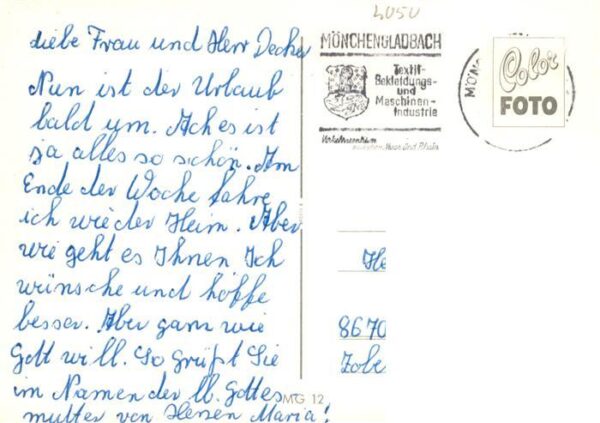 liebe Frau und Herr Decker
Nun ist der Urlaub
bald um. Ach es ist
ja alles so schön. Am
Ende der Woche fahre
ich wieder Heim. Aber
wie geht es Ihnen Ich
wünsche und hoffe
besser. Aber ganz wie
Gott will. So grüßt Sie
im Namen der lb. Gottes
mutter von Herzen Maria!
4050
MÖNCHENGLADBACH
Textil-
Bekleidungs-
und
Maschinen-
Industrie
Verkehrszentrum
zwischen Maas und Rhein
MÖN
Color
FOTO
He
8670
MG 12